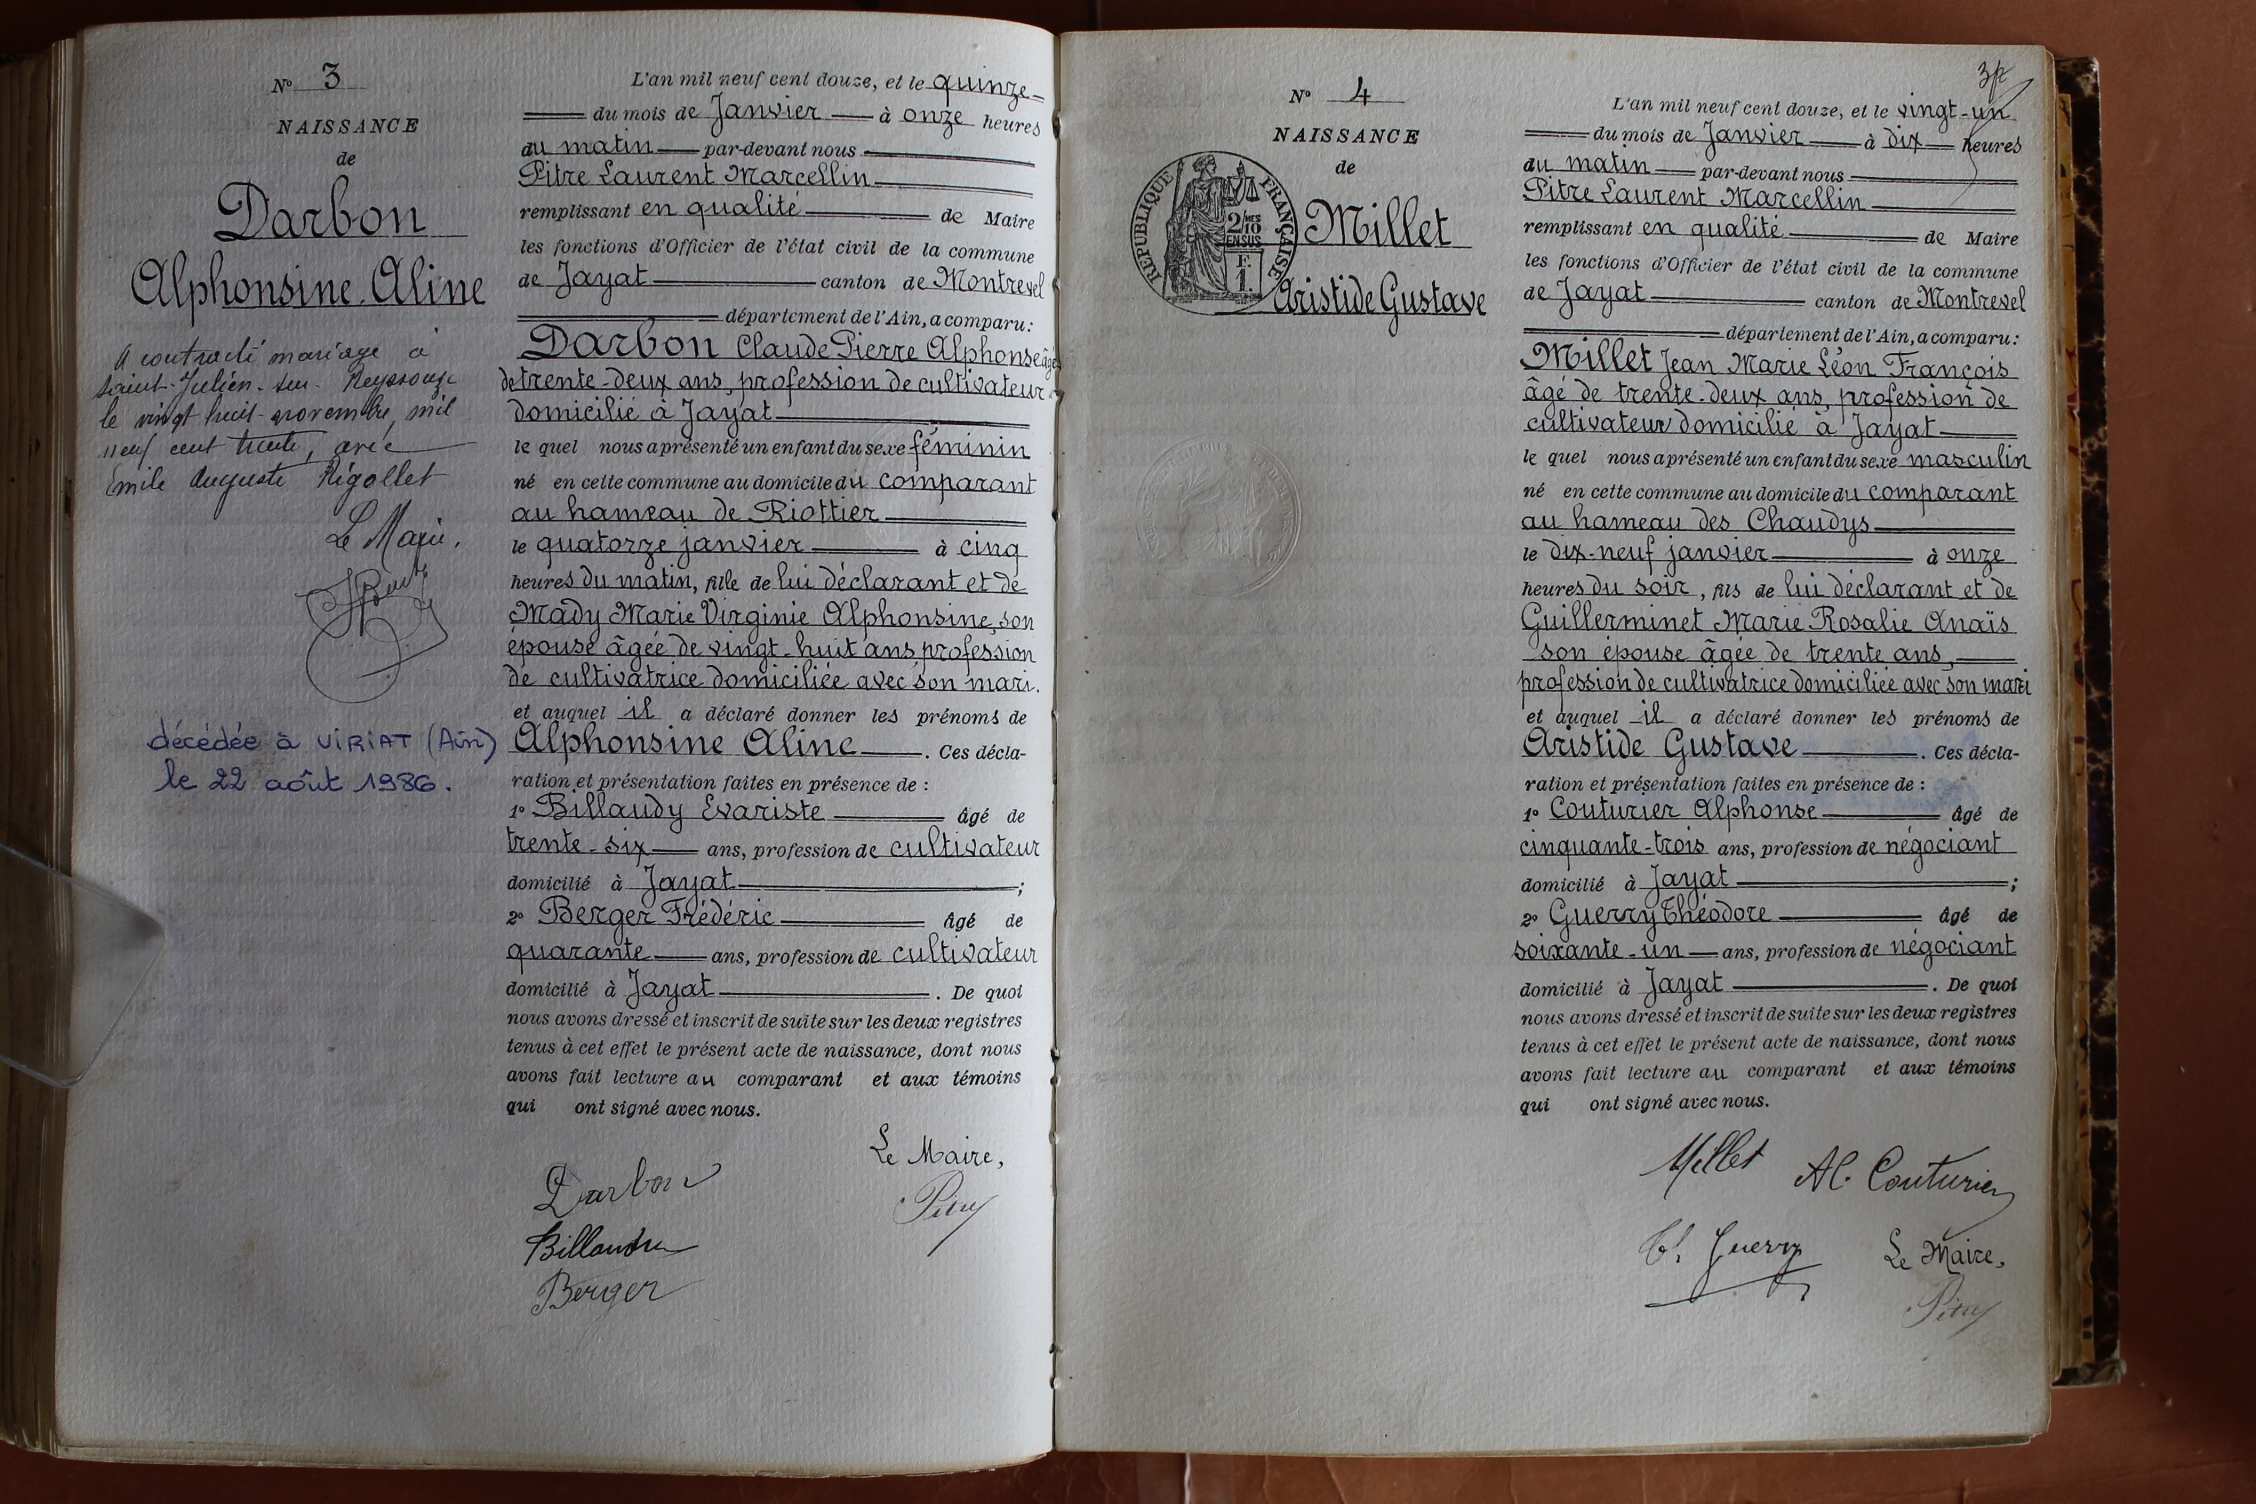 N° 3
NAISSANCE
de
Darbon
Alphonsine Aline
A contracté mariage à
Saint-Julien-sur-Reyssouze
le vingt huit novembre mil
neuf cent trente, avec
Emile Auguste Rigollet
Le Maire,
décédée à VIRIAT (Ain)
le 22 août 1986.
L'an mil neuf cent douze, et le quinze
du mois de Janvier à onze heures
du matin par-devant nous
Pitre Laurent Marcellin
remplissant en qualité de Maire
les fonctions d'Officier de l'état civil de la commune
de Jayat canton de Montrevel
département de l'Ain, a comparu:
Darbon Claude Pierre Alphonse âgé
de trente-deux ans, profession de cultivateur
domicilié à Jayat
le quel nous a présenté un enfant du sexe féminin
né en cette commune au domicile du comparant
au hameau de Riottier
le quatorze janvier à cinq
heures du matin, fille de lui déclarant et de
Mady Marie Virginie Alphonsine, son
épouse âgée de vingt-huit ans, profession
de cultivatrice domiciliée avec son mari.
et auquel il a déclaré donner les prénoms de
Alphonsine Aline. Ces décla-
ration et présentation faites en présence de :
1° Billaudy Evariste âgé de
trente-six ans, profession de cultivateur
domicilié à Jayat ;
2° Berger Frédéric âgé de
quarante ans, profession de cultivateur
domicilié à Jayat. De quoi
nous avons dressé et inscrit de suite sur les deux registres
tenus à cet effet le présent acte de naissance, dont nous
avons fait lecture au comparant et aux témoins
qui ont signé avec nous.
Le Maire,
Darbon
Billaudy
Berger
N° 4
NAISSANCE
de
RÉPUBLIQUE FRANÇAISE
2/MES
10
EN SUS
F.
1.
Millet
Aristide Gustave
L'an mil neuf cent douze, et le vingt-un
du mois de Janvier à dix heures
du matin par-devant nous
Pitre Laurent Marcellin
remplissant en qualité de Maire
les fonctions d'Officier de l'état civil de la commune
de Jayat canton de Montrevel
département de l'Ain, a comparu:
Millet Jean Marie Léon François
âgé de trente-deux ans, profession de
cultivateur domicilié à Jayat
le quel nous a présenté un enfant du sexe masculin
né en cette commune au domicile du comparant
au hameau des Chaudys
le dix-neuf janvier à onze
heures du soir, fils de lui déclarant et de
Guillerminet Marie Rosalie Anaïs
son épouse âgée de trente ans,
profession de cultivatrice domiciliée avec son mari
et auquel il a déclaré donner les prénoms de
Aristide Gustave. Ces décla-
ration et présentation faites en présence de :
1° Couturier Alphonse âgé de
cinquante-trois ans, profession de négociant
domicilié à Jayat ;
2° Guerry Théodore âgé de
soixante-un ans, profession de négociant
domicilié à Jayat. De quoi
nous avons dressé et inscrit de suite sur les deux registres
tenus à cet effet le présent acte de naissance, dont nous
avons fait lecture au comparant et aux témoins
qui ont signé avec nous.
Millet Al. Couturier
Th Guerry Le Maire,